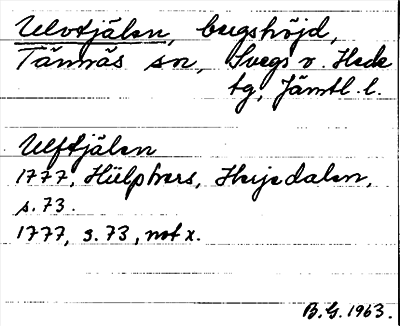 Ulvtjälen, bergshöjd,
Tännäs sn, Svegs o. Hede
tg, Jämtl. l.
Ulftjälen
1777, Hülphers, Herjedalen,
s. 73.
1777, s. 73, not x.
B.G. 1963.